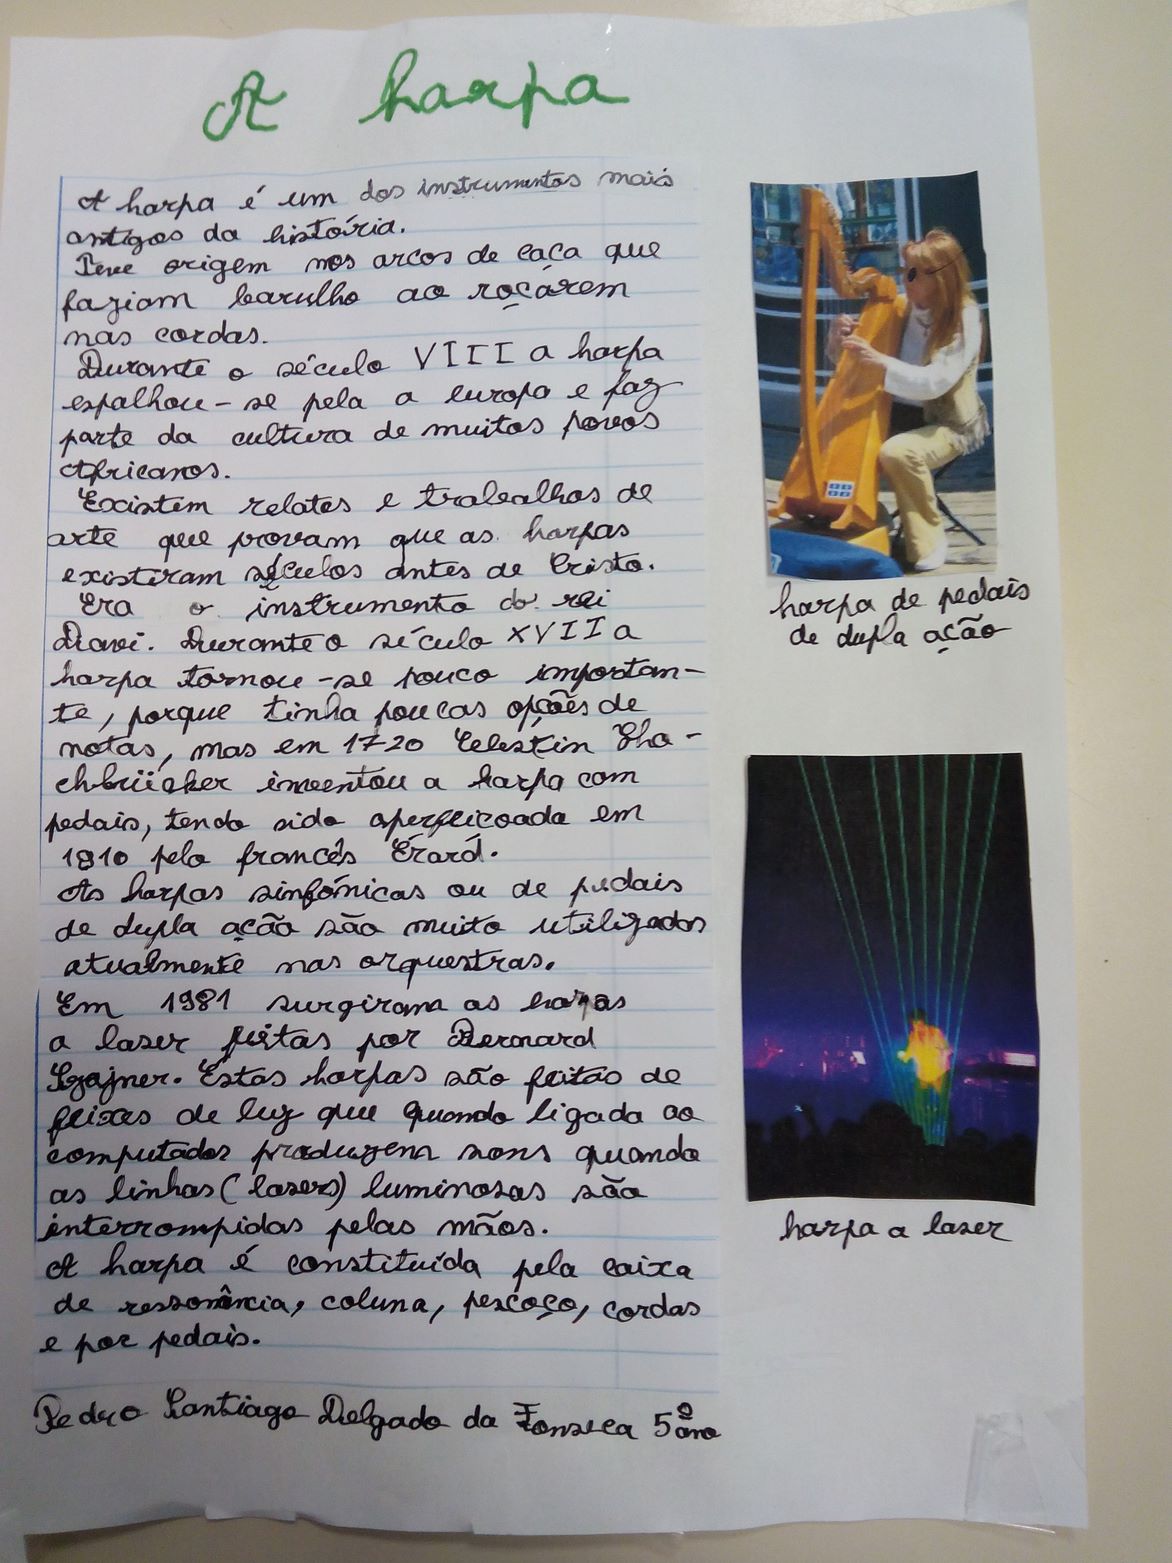 A harpa
A harpa é um dos instrumentos mais
antigos da história.
Teve origem nos arcos de caça que
faziam barulho ao roçárem
nas cordas.
Durante o século VIII a harpa
espalhou-se pela a europa e faz
parte da cultura de muitos povos
Africanos.
Existem relatos e trabalhos de
arte que provam que as harpas
existiram séculos antes de Cristo.
Era o instrumento do rei
Davi. Durante o século XVII a
harpa tornou-se pouco importan-
te, porque tinha poucas opções de
notas, mas em 1720 Celestin
inventou a harpa com
pedais, tendo sido aperfeicoada em
1810 pelo francês Érard.
As harpas sinfónicas ou de pedais
de dupla ação são muito utilizados
atualmente nas orquestras.
Em 1981 surgiram as harpas
a laser feitas por Bernard
Szajner. Estas harpas são feitas de
feixes de luz que quando ligada ao
computador produzem sons quando
as linhas (lasers) luminosas são
interrompidas pelas mãos.
A harpa é constituída pela caixa
de ressonância, coluna, pescoço, cordas
e por pedais.
Pedro Santiago Delgado da Fonseca 5º ano
harpa de pedais
de dupla ação
harpa a laser